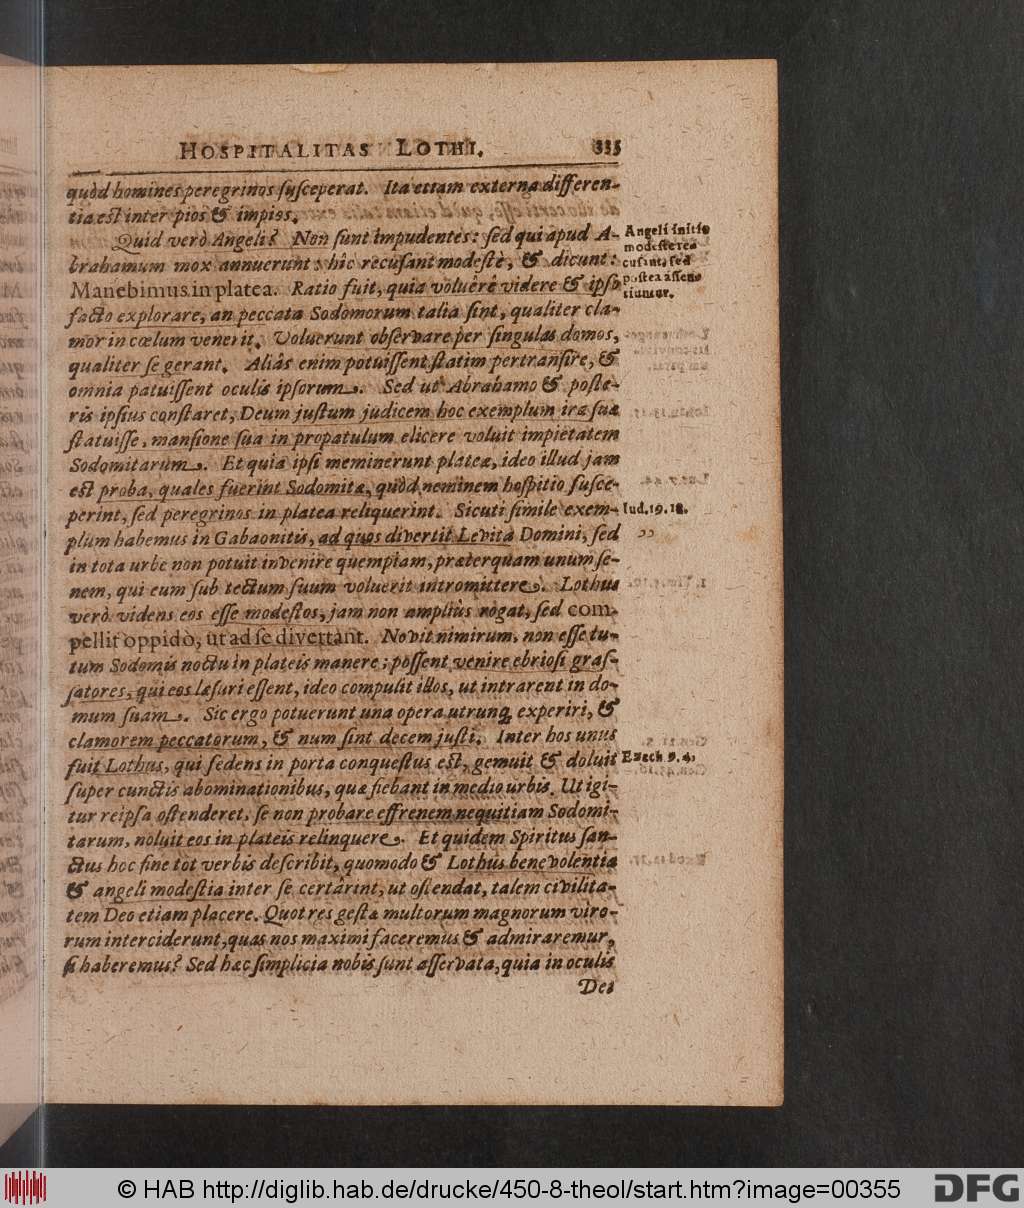 HOSPITALITAS LOTHI. 335
quòd homines peregrinos susceperat. Ita etiam externa differen-
tia est inter pios & impios.
Quid verò Angeli? Non sunt impudentes: sed qui apud A-
brahamum mox annuerunt: hîc recusant modestè, & dicunt:
Manebimus in platea. Ratio fuit, quia voluêrê videre & ipso
facto explorare, an peccata Sodomorum talia sint, qualiter cla-
mor in cœlum venerit. Voluerunt observare per singulas domos,
qualiter se gerant. Aliàs enim potuissent statim pertransire, &
omnia patuissent oculis ipsorum. Sed ut Abrahamo & poste-
ris ipsius constaret, Deum justum judicem hoc exemplum iræ suæ
statuisse, mansione sua in propatulum elicere voluit impietatem
Sodomitarum. Et quia ipsi meminerunt plateæ, ideo illud jam
est proba, quales fuerint Sodomitæ, quòd neminem hospitio susce-
perint, sed peregrinos in platea reliquerint. Sicuti simile exem-
plum habemus in Gabaonitis, ad quos divertit Levita Domini, sed
in tota urbe non potuit invenire quempiam, præterquam unum se-
nem, qui eum sub tectum suum voluerit intromittere. Lothus
verò videns eos esse modestos, jam non ampliùs rogat, sed com-
pellit oppidò, ut ad se divertant. Novit nimirum, non esse tu-
tum Sodomis noctu in plateis manere; possent venire ebriosi gras-
satores, qui eos læsuri essent, ideo compulit illos, ut intrarent in do-
mum suam. Sic ergo potuerunt una opera utrunq; experiri, &
clamorem peccatorum, & num sint decem justi. Inter hos unus
fuit Lothus, qui sedens in porta conquestus est, gemuit & doluit
super cunctis abominationibus, quæ fiebant in medio urbis. Ut igi-
tur reipsa ostenderet, se non probare effrenem nequitiam Sodomi-
tarum, noluit eos in plateis relinquere. Et quidem Spiritus san-
ctus hoc fine tot verbis describit, quomodo & Lothus benevolentia
& angeli modestia inter se certârint, ut ostendat, talem civilita-
tem Deo etiam placere. Quot res gestæ multorum magnorum viro-
rum interciderunt, quas nos maximi faceremus & admiraremur,
si haberemus? Sed hæc simplicia nobis sunt asservata, quia in oculis
Dei
Angeli initio
modeste re-
cusint, sed
postea assen-
tiuntur.
Iud. 19. 18.
Ezech 9. 4.
© HAB http://diglib.hab.de/drucke/450-8-theol/start.htm?image=00355
DFG